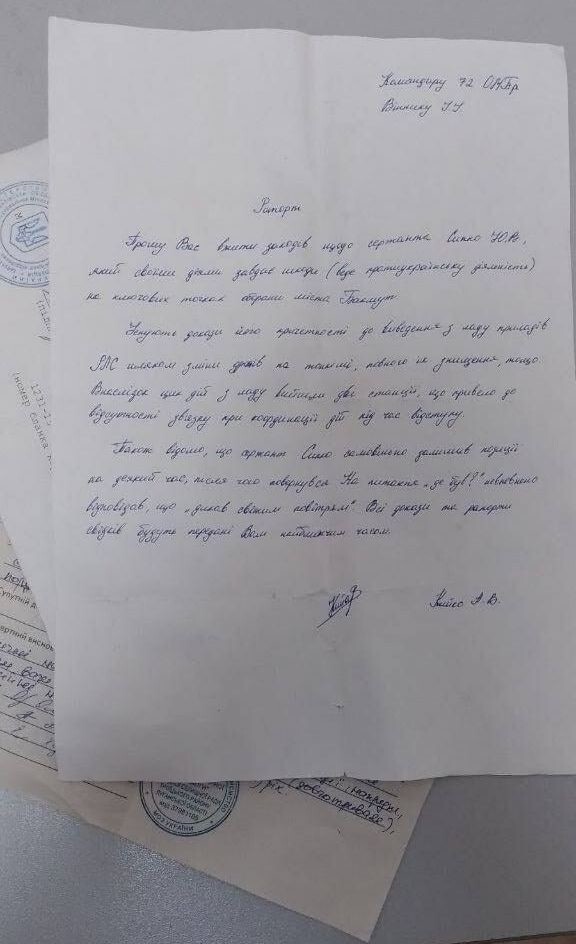 Командиру 72 ОМБр
Вінніку І.І.
Рапорт
Прошу Вас вжити заходів щодо сержанта Сипко Ю.В.,
який своїми діями завдає шкоди (веде протиукраїнську діяльність)
на ключових точках оборони міста Бахмут.
Існують докази його причетності до виведення з ладу приладів
шляхом зміни на тонкий, повного їх знищення, тощо.
Внаслідок цих дій з ладу вийшли дві станції, що привело до
відсутності зв'язку при координації дій під час відступу.
Також відомо, що сержант Сипко самовільно залишив позиції
на деякий час, після чого повернувся. На питання „де був?" невпевнено
відповідав, що „дихав свіжим повітрям". Всі докази та рапорти
свідків будуть передані Вам найближчим часом.
Кийко А.В.
(номер бланка
МОЗ УКРАЇНИ